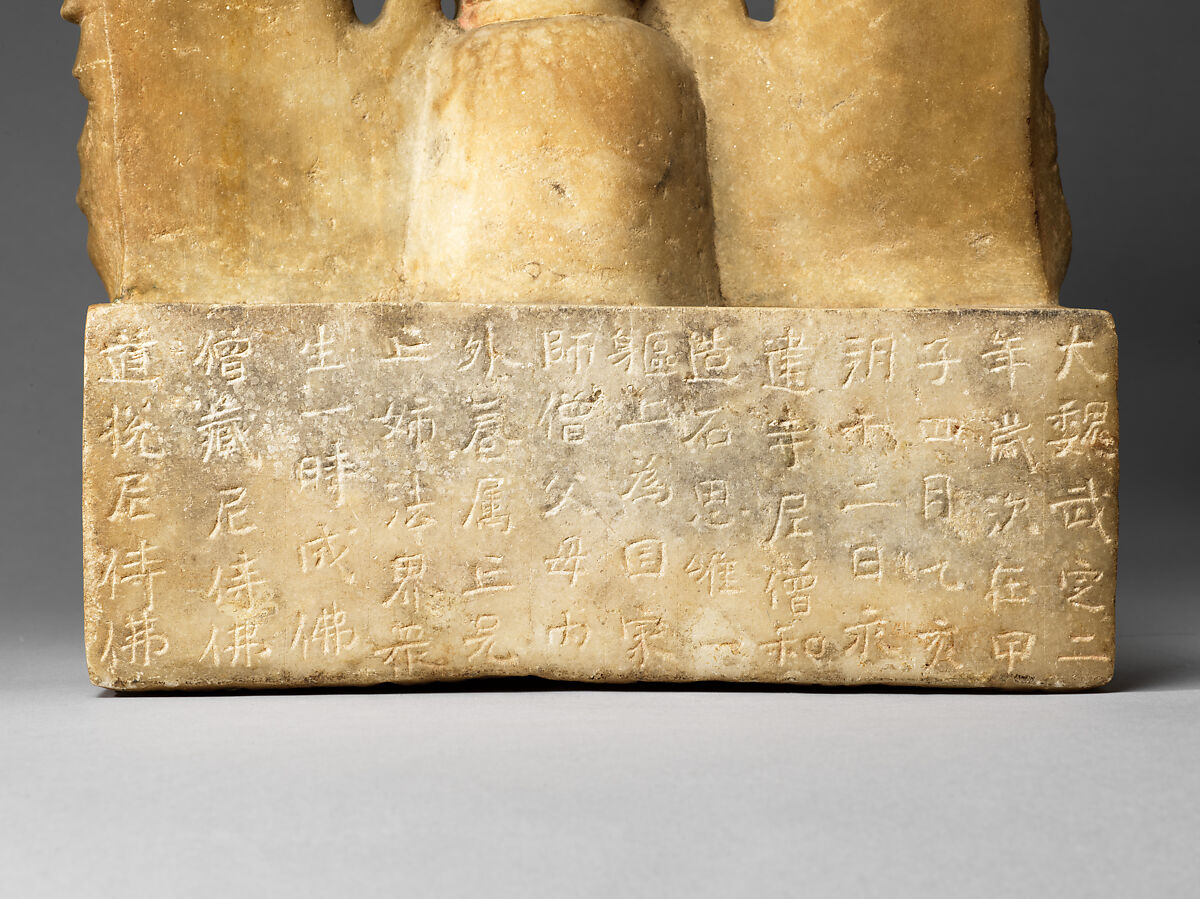 大魏武定二
年歲次在甲
子四月乙亥
朔十二日永
建寺尼僧和
造石思惟一
軀上為囯家
師僧父母内
外眷属亡兄
亡姉法界衆
生一時成佛
僧藏尼侍佛
道悦尼侍佛